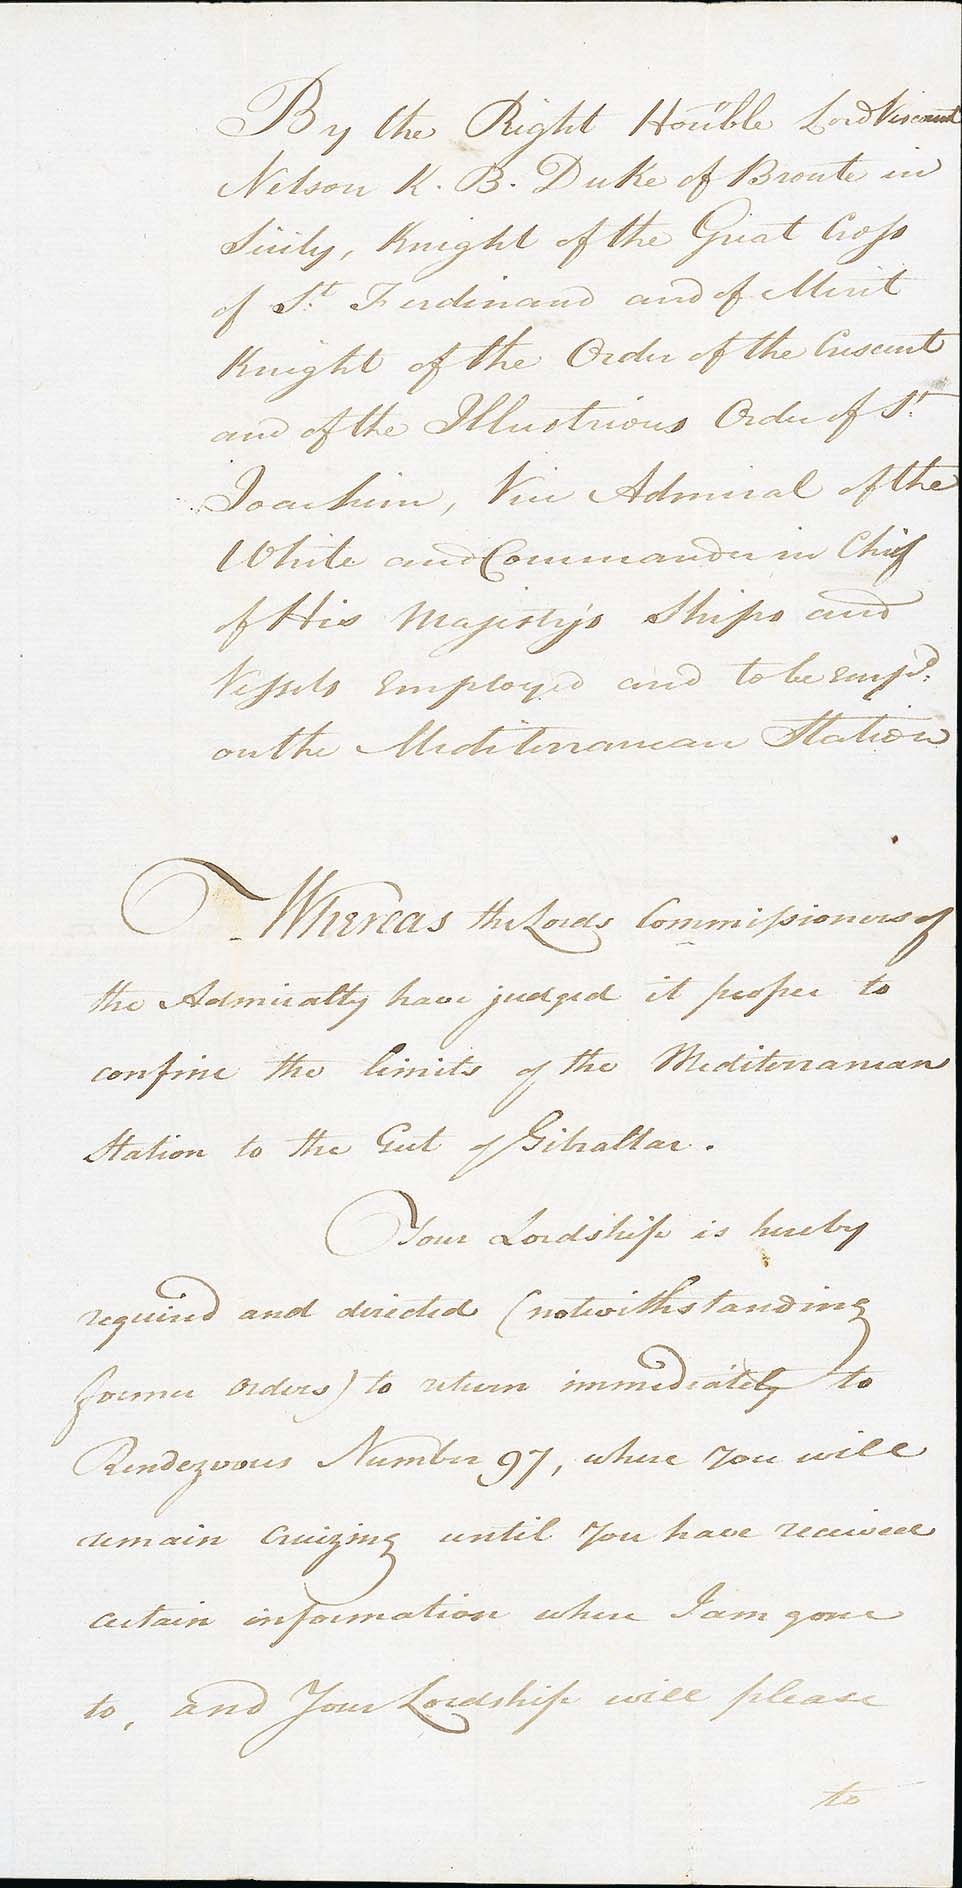 By the Right Hon:ble Lord Viscount
Nelson K. B. Duke of Bronte in
Sicily, Knight of the Great Cross
of St. Ferdinand and of Merit
Knight of the Order of the Crescent
and of the Illustrious Order of St.
Joachim, Vice Admiral of the
White and Commander in Chief
of His Majesty's Ships and
Vessels Employed and to be Emp'd.
on the Mediterranean Station
Whereas the Lords Commissioners of
the Admiralty have judged it proper to
confine the limits of the Mediterranean
Station to the Gut of Gibraltar.
Your Lordship is hereby
required and directed (notwithstanding
former orders) to return immediately to
Rendezvous Number 97, where you will
remain cruizing until you have received
certain information where I am gone
to, and Your Lordship will please
to